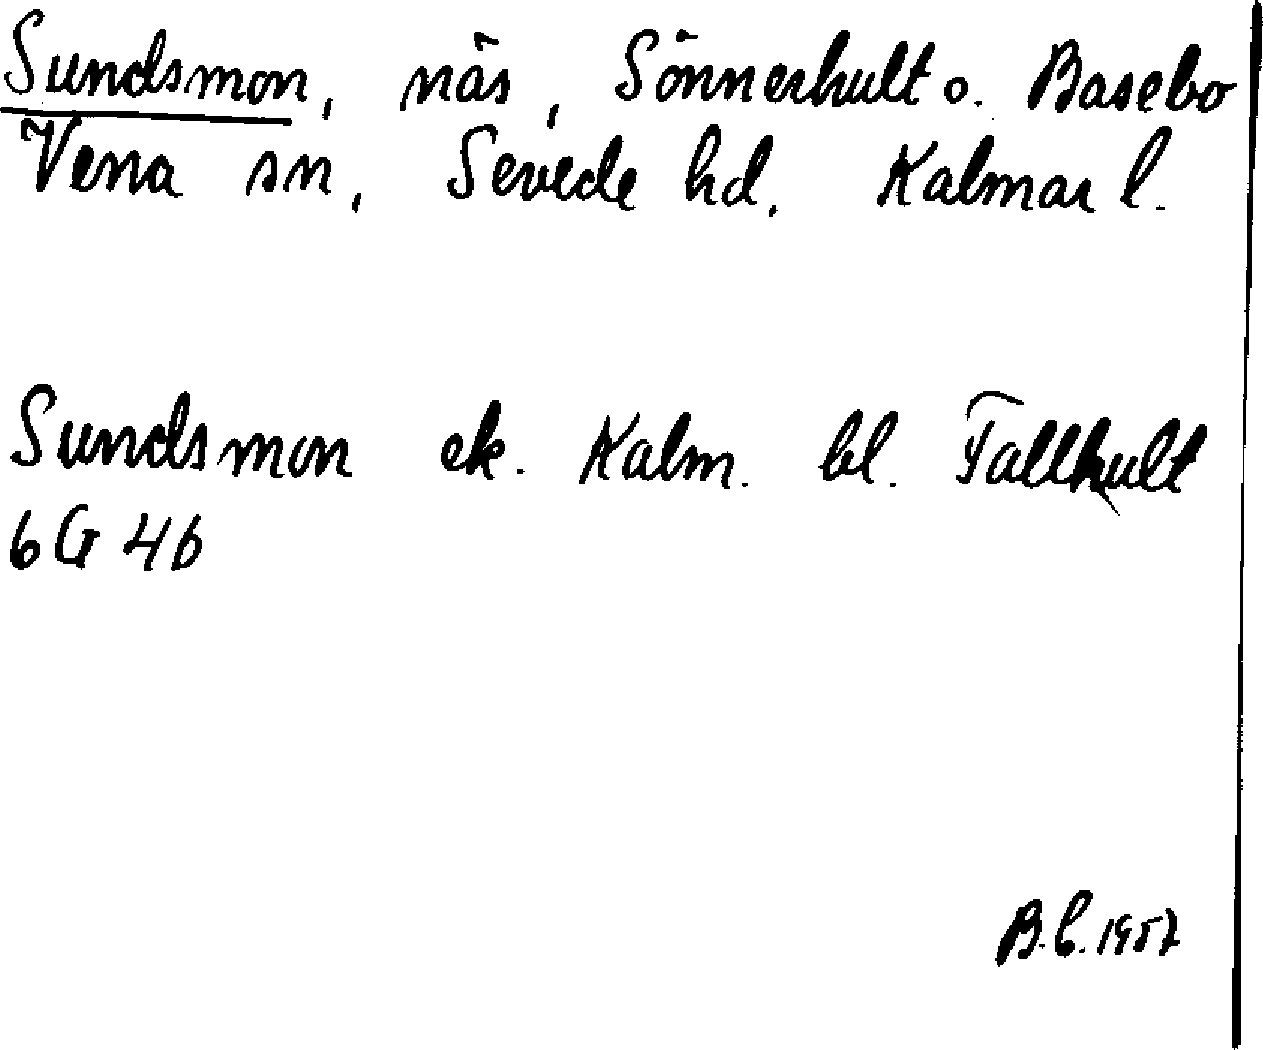 Sundsmon, näs, Sönnerhult o. Basebo
Vena sn, Sevede hd. Kalmar l.
Sundsmon ek. Kalm. bl. Fallhult
6G 4b
B.C. 1957